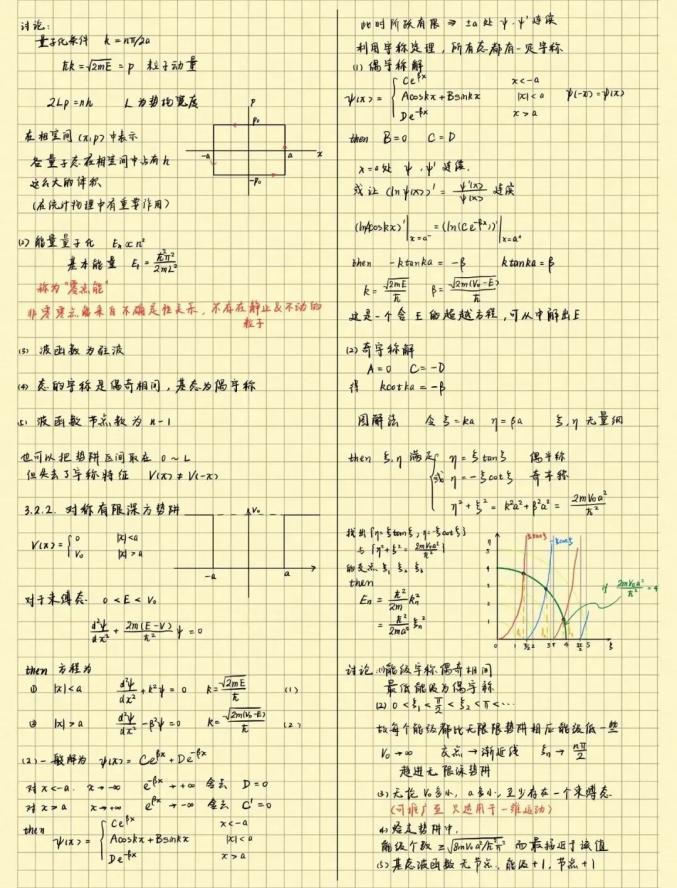 讨论:
量子化条件 k = nπ/2a
ħk = √2mE = p 粒子动量
2Lp = nh L为势阱宽度
在相空间(x,p)中表示
各量子态在相空间中占有h
这么大的体积
(在统计物理中有重要作用)
p
p₀
-a
a
x
-p₀
(2) 能量量子化 Eₙ ∝ n²
基本能量 E₁ = ħ²π²/2mL²
称为"零点能"
非零零点能来自不确定性关系, 不存在静止的不动的
粒子
(3) 波函数为驻波
(4) 态的宇称是偶奇相间, 基态为偶宇称
(5) 波函数节点数为 n-1
也可以把势阱区间取在 0~L
但失去了宇称特征 V(x) ≠ V(-x)
3.2.2. 对称有限深方势阱
V(x) = { 0 |x|<a
V₀ |x|>a
V₀
-a
a
对于束缚态 0<E<V₀
d²ψ/dx² + 2m(E-V)/ħ² ψ = 0
then 方程为
① |x|<a d²ψ/dx² + k²ψ = 0 k = √2mE/ħ (1)
② |x|>a d²ψ/dx² - β²ψ = 0 k = √2m(V₀-E)/ħ (2)
(2) 一般解为 ψ(x) = Ce^βx + De^-βx
对 x<-a. x→-∞ e^-βx → +∞ 舍去 D=0
对 x>a x→+∞ e^βx → -∞ 舍去 C'=0
then
ψ(x) = { Ce^βx x<-a
Acoskx + Bsinkx |x|<a
De^-βx x>a
此时阶跃有限 ⇒ ±a处 ψ, ψ' 连续
利用宇称定理, 所有态都有一定宇称
(1) 偶宇称解
ψ(x) = { Ce^βx x<-a
Acoskx + Bsinkx |x|<a ψ(-x)=ψ(x)
De^-βx x>a
then B=0 C=D
x=a处 ψ, ψ' 连续.
或让 (lnψ(x))' = ψ'(x)/ψ(x) 连续
(lnAcoskx)'|x=a⁻ = (ln(Ce^-βx))'|x=a⁺
then -ktanka = -β ktanka = β
k = √2mE/ħ β = √2m(V₀-E)/ħ
这是一个含E的超越方程, 可从中解出E
(2) 奇宇称解
A=0 C=-D
得 kcotka = -β
图解法 令 ξ=ka η=βa ξ,η无量纲
then ξ,η 满足 { η = ξtanξ 偶宇称
或 η = -ξcotξ 奇宇称
η² + ξ² = k²a² + β²a² = 2mV₀a²/ħ²
找出 {η=ξtanξ, η=-ξcotξ}
与 {η²+ξ² = 2mV₀a²/ħ²}
的交点 ξ₁ ξ₂ ξ₃
then
Eₙ = ħ²/2m kₙ²
= ħ²/2ma² ξₙ²
讨论 (1) 能级宇称偶奇相间
最低能级为偶宇称
(2) 0<ξ₁<π/2<ξ₂<π<···
故每个能级都比无限深势阱相应能级低一些
V₀→∞ 交点→渐近线 ξₙ → nπ/2
趋近无限深势阱
(3) 无论V₀多小, a多小, 至少存在一个束缚态
(可推广至 只适用于一维运动)
(4) 给定势阱中.
能级个数 ≥ √8mV₀a²/ħ²π² 而最接近于该值
(5) 基态波函数无节点, 能级+1, 节点+1